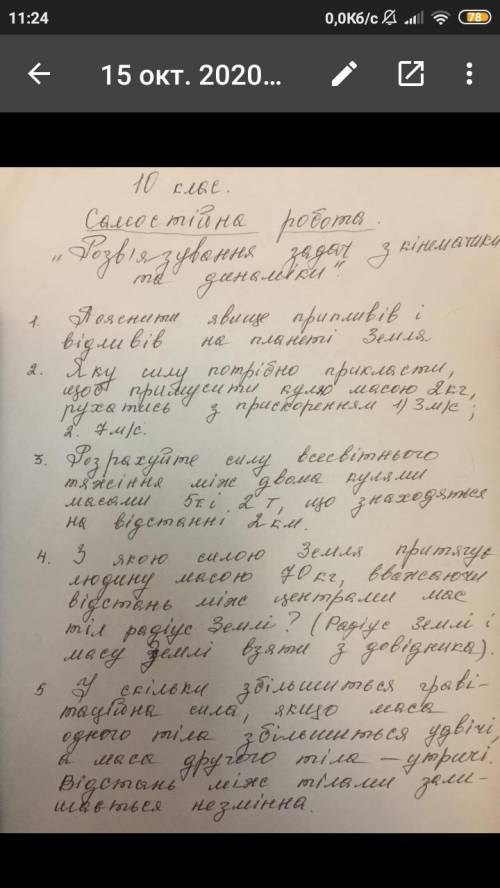 11:24
0,0Кб/с
78
15 окт. 2020...
10 клас.
Самостійна робота.
„Розв'язування задач з кінематики
та динаміки".
1. Пояснити явище припливів і
відливів на планеті Земля
2. Яку силу потрібно прикласти,
щоб примусити кулю масою 2кг,
рухатись з прискоренням 1) 3м/с ;
2. 7м/с.
3. Розрахуйте силу всесвітнього
тяжіння між двома кулями
масами 5т і 2 т, що знаходяться
на відстанні 2км.
4. З якою силою Земля притягує
людину масою 70кг, вважаючи
відстань між центрами мас
тіл радіус Землі? (Радіус Землі і
масу Землі взяти з довідника).
5 У скільки збільшиться граві-
таційна сила, якщо маса
одного тіла збільшиться удвічі,
а маса другого тіла – утричі.
Відстань між тілами зали-
шається незмінна.